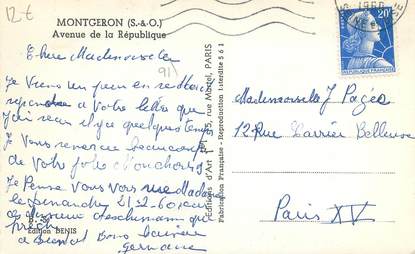 12€
MONTGERON (S.-&-O.)
Avenue de la République
91
Chère Mademoiselle
Je Viens un peu en retard
repondre a Votre lettre que
J'ai reçu il y a quelques temps
Je Vous remercie beaucoup
de Votre jolie
Je Pense Vous Voir Madame
le dimanche 21-2-60
a Bientot Bons baisers
germaine
B. 36
Edition DENIS
Editions d'Art rue Martel, PARIS
Fabrication Française - Reproduction Interdite 561
1960
20F
Mademoiselle J Pagès
12 Rue Carrier Belleuse
Paris XV